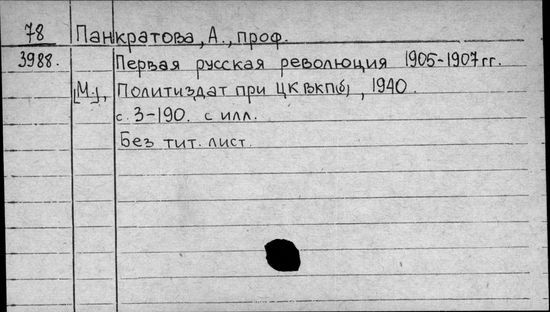 78 Панкратова, А., проф.
3988. Первая русская революция 1905-1907 гг.
[М.], Политиздат при ЦК ВКП(б), 1940.
с. 3-190. с илл.
Без тит. лист.